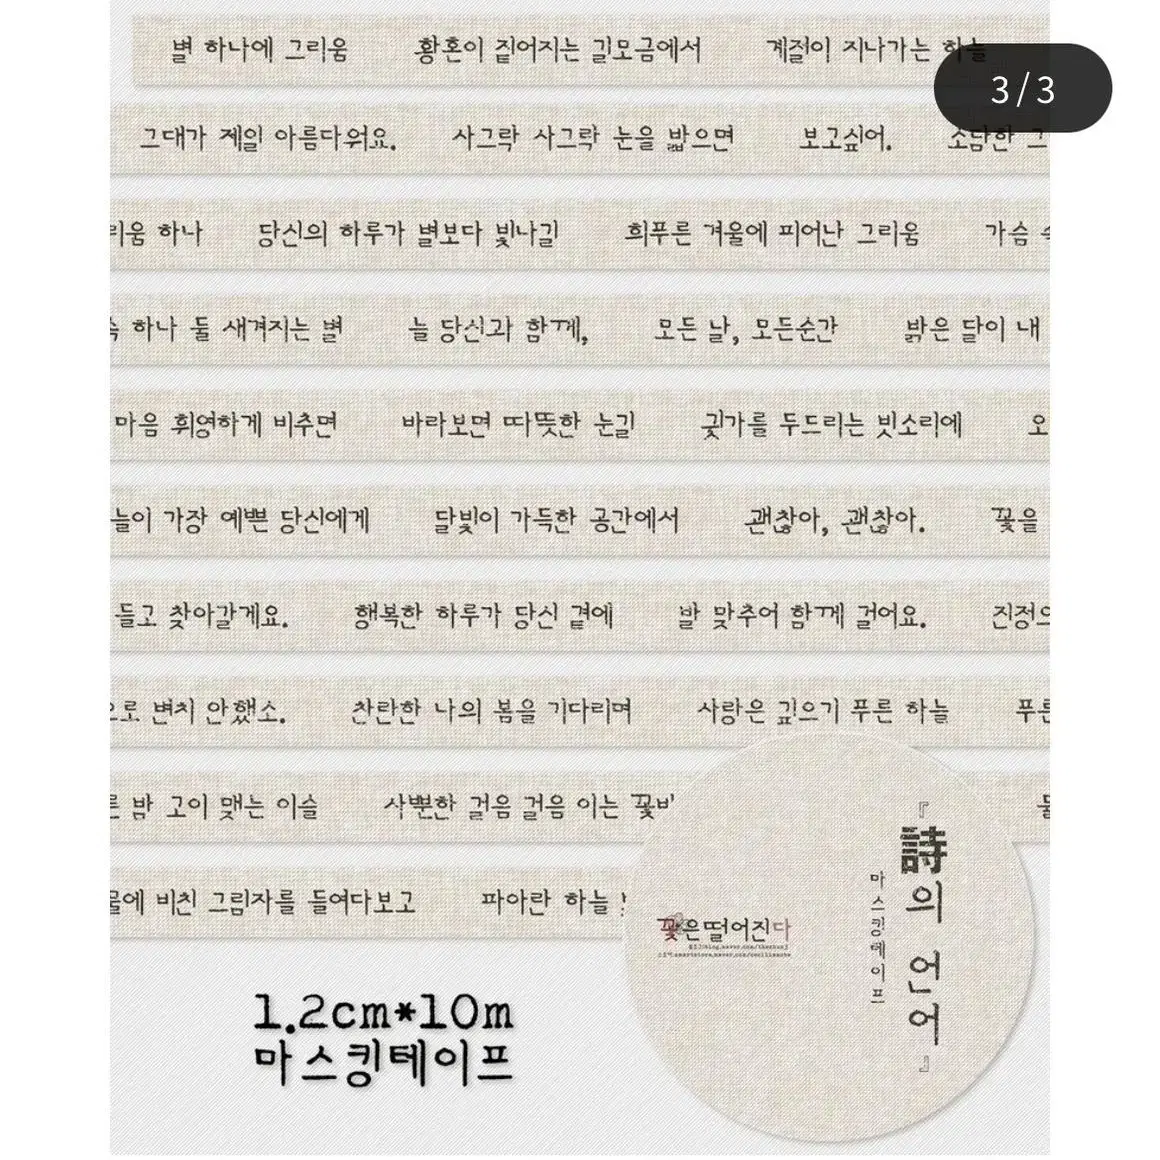 별 하나에 그리움 황혼이 짙어지는 길모금에서 계절이 지나가는 하늘
3/3
그대가 제일 아름다워요. 사그락 사그락 눈을 밟으면 보고싶어. 소담한 그
리움 하나 당신의 하루가 별보다 빛나길 희푸른 겨울에 피어난 그리움 가슴 속
속 하나 둘 새겨지는 별 늘 당신과 함께, 모든 날, 모든순간 밝은 달이 내
마음 휘영하게 비추면 바라보면 따뜻한 눈길 귓가를 두드리는 빗소리에 오
늘이 가장 예쁜 당신에게 달빛이 가득한 공간에서 괜찮아, 괜찮아. 꽃을
들고 찾아갈게요. 행복한 하루가 당신 곁에 발 맞추어 함께 걸어요. 진정으
으로 변치 안했소. 찬란한 나의 봄을 기다리며 사랑은 깊으기 푸른 하늘 푸른
른 밤 고이 맺는 이슬 사뿐한 걸음 걸음 이는 꽃비
물에 비친 그림자를 들여다보고 파아란 하늘
『詩의 언어』
마스킹테이프
꽃은떨어진다
1.2cm*10m
마스킹테이프